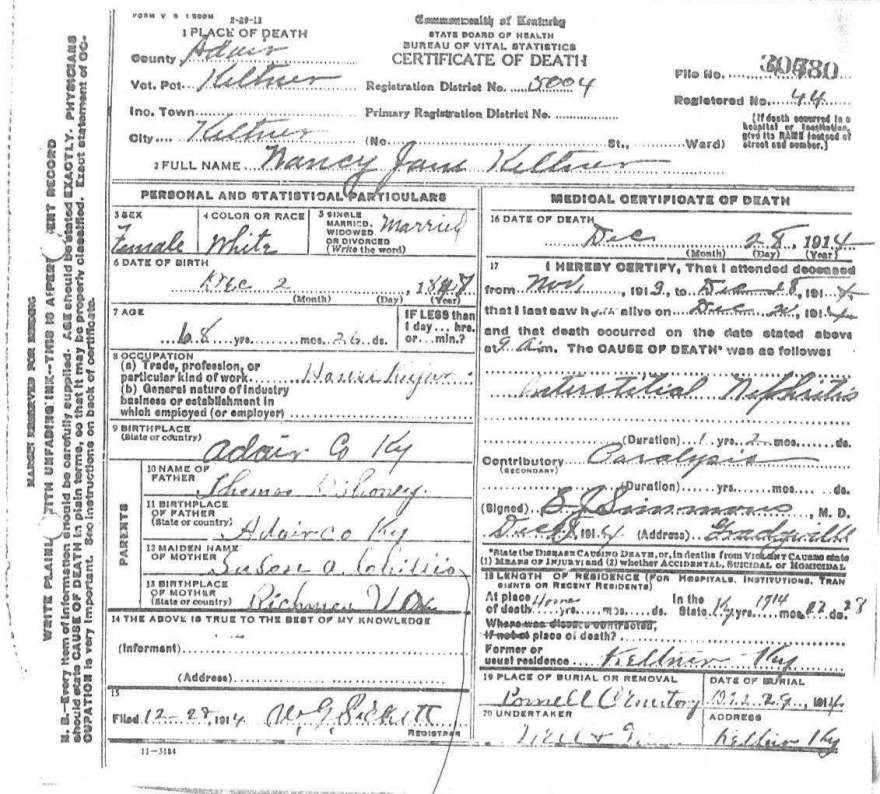 FORM V S 1 500M 2-29-12
Commonwealth of Kentucky
STATE BOARD OF HEALTH
BUREAU OF VITAL STATISTICS
CERTIFICATE OF DEATH
1 PLACE OF DEATH
County Adair
Vot. Pct. Keltner
Registration District No. 5004
File No. 30580
Ino. Town
Primary Registration District No.
Registered No. 44
City Keltner (No. St., Ward)
(If death occurred in a hospital or institution, give its NAME instead of street and number.)
2 FULL NAME Nancy Jane Keltner
PERSONAL AND STATISTICAL PARTICULARS
3 SEX Female
4 COLOR OR RACE White
5 SINGLE MARRIED, WIDOWED OR DIVORCED (Write the word) Married
6 DATE OF BIRTH
Dec 2, 18
(Month) (Day) (Year)
7 AGE
68 yrs. mos. 26 ds.
IF LESS than 1 day... hrs. or... min.?
8 OCCUPATION
(a) Trade, profession, or particular kind of work
(b) General nature of industry business or establishment in which employed (or employer)
9 BIRTHPLACE (State or country) Adair Co Ky
PARENTS
10 NAME OF FATHER Thomas
11 BIRTHPLACE OF FATHER (State or country) Adair co Ky
12 MAIDEN NAME OF MOTHER Susan A
13 BIRTHPLACE OF MOTHER (State or country)
14 THE ABOVE IS TRUE TO THE BEST OF MY KNOWLEDGE
(Informant)
(Address)
15
Filed 12-28, 1914
REGISTRAR
11-3184
MEDICAL CERTIFICATE OF DEATH
16 DATE OF DEATH
Dec 28, 1914
(Month) (Day) (Year)
17 I HEREBY CERTIFY, That I attended deceased
from Nov, 1913, to Dec 28, 1914
that I last saw her alive on Dec, 1914
and that death occurred on the date stated above
at 9 a.m. The CAUSE OF DEATH* was as follows:
Interstitial Nephritis
(Duration) 1 yrs. 2 mos. ds.
Contributory (SECONDARY) Paralysis
(Duration) yrs. mos. ds.
(Signed) Simmons, M. D.
Dec, 1914 (Address) Gradyville
*State the DISEASE CAUSING DEATH, or, in deaths from VIOLENT CAUSES state (1) MEANS OF INJURY; and (2) whether ACCIDENTAL, SUICIDAL OR HOMICIDAL
18 LENGTH OF RESIDENCE (FOR HOSPITALS, INSTITUTIONS, TRANSIENTS OR RECENT RESIDENTS)
At place of death Home yrs. mos. ds. In the State Ky 1914 yrs. mos. 12 ds. 28
Where was disease contracted, if not at place of death?
Former or usual residence Keltner Ky
19 PLACE OF BURIAL OR REMOVAL
DATE OF BURIAL
Dec 29, 1914
20 UNDERTAKER
ADDRESS
Keltner Ky
MARGIN RESERVED FOR BINDING
WRITE PLAINL ITH UNFADING INK--THIS IS A PER ENT RECORD
N. B.--Every item of information should be carefully supplied. AGE should be stated EXACTLY. PHYSICIANS
should state CAUSE OF DEATH in plain terms, so that it may be properly classified. Exact statement of OC-
CUPATION is very important. See instructions on back of certificate.